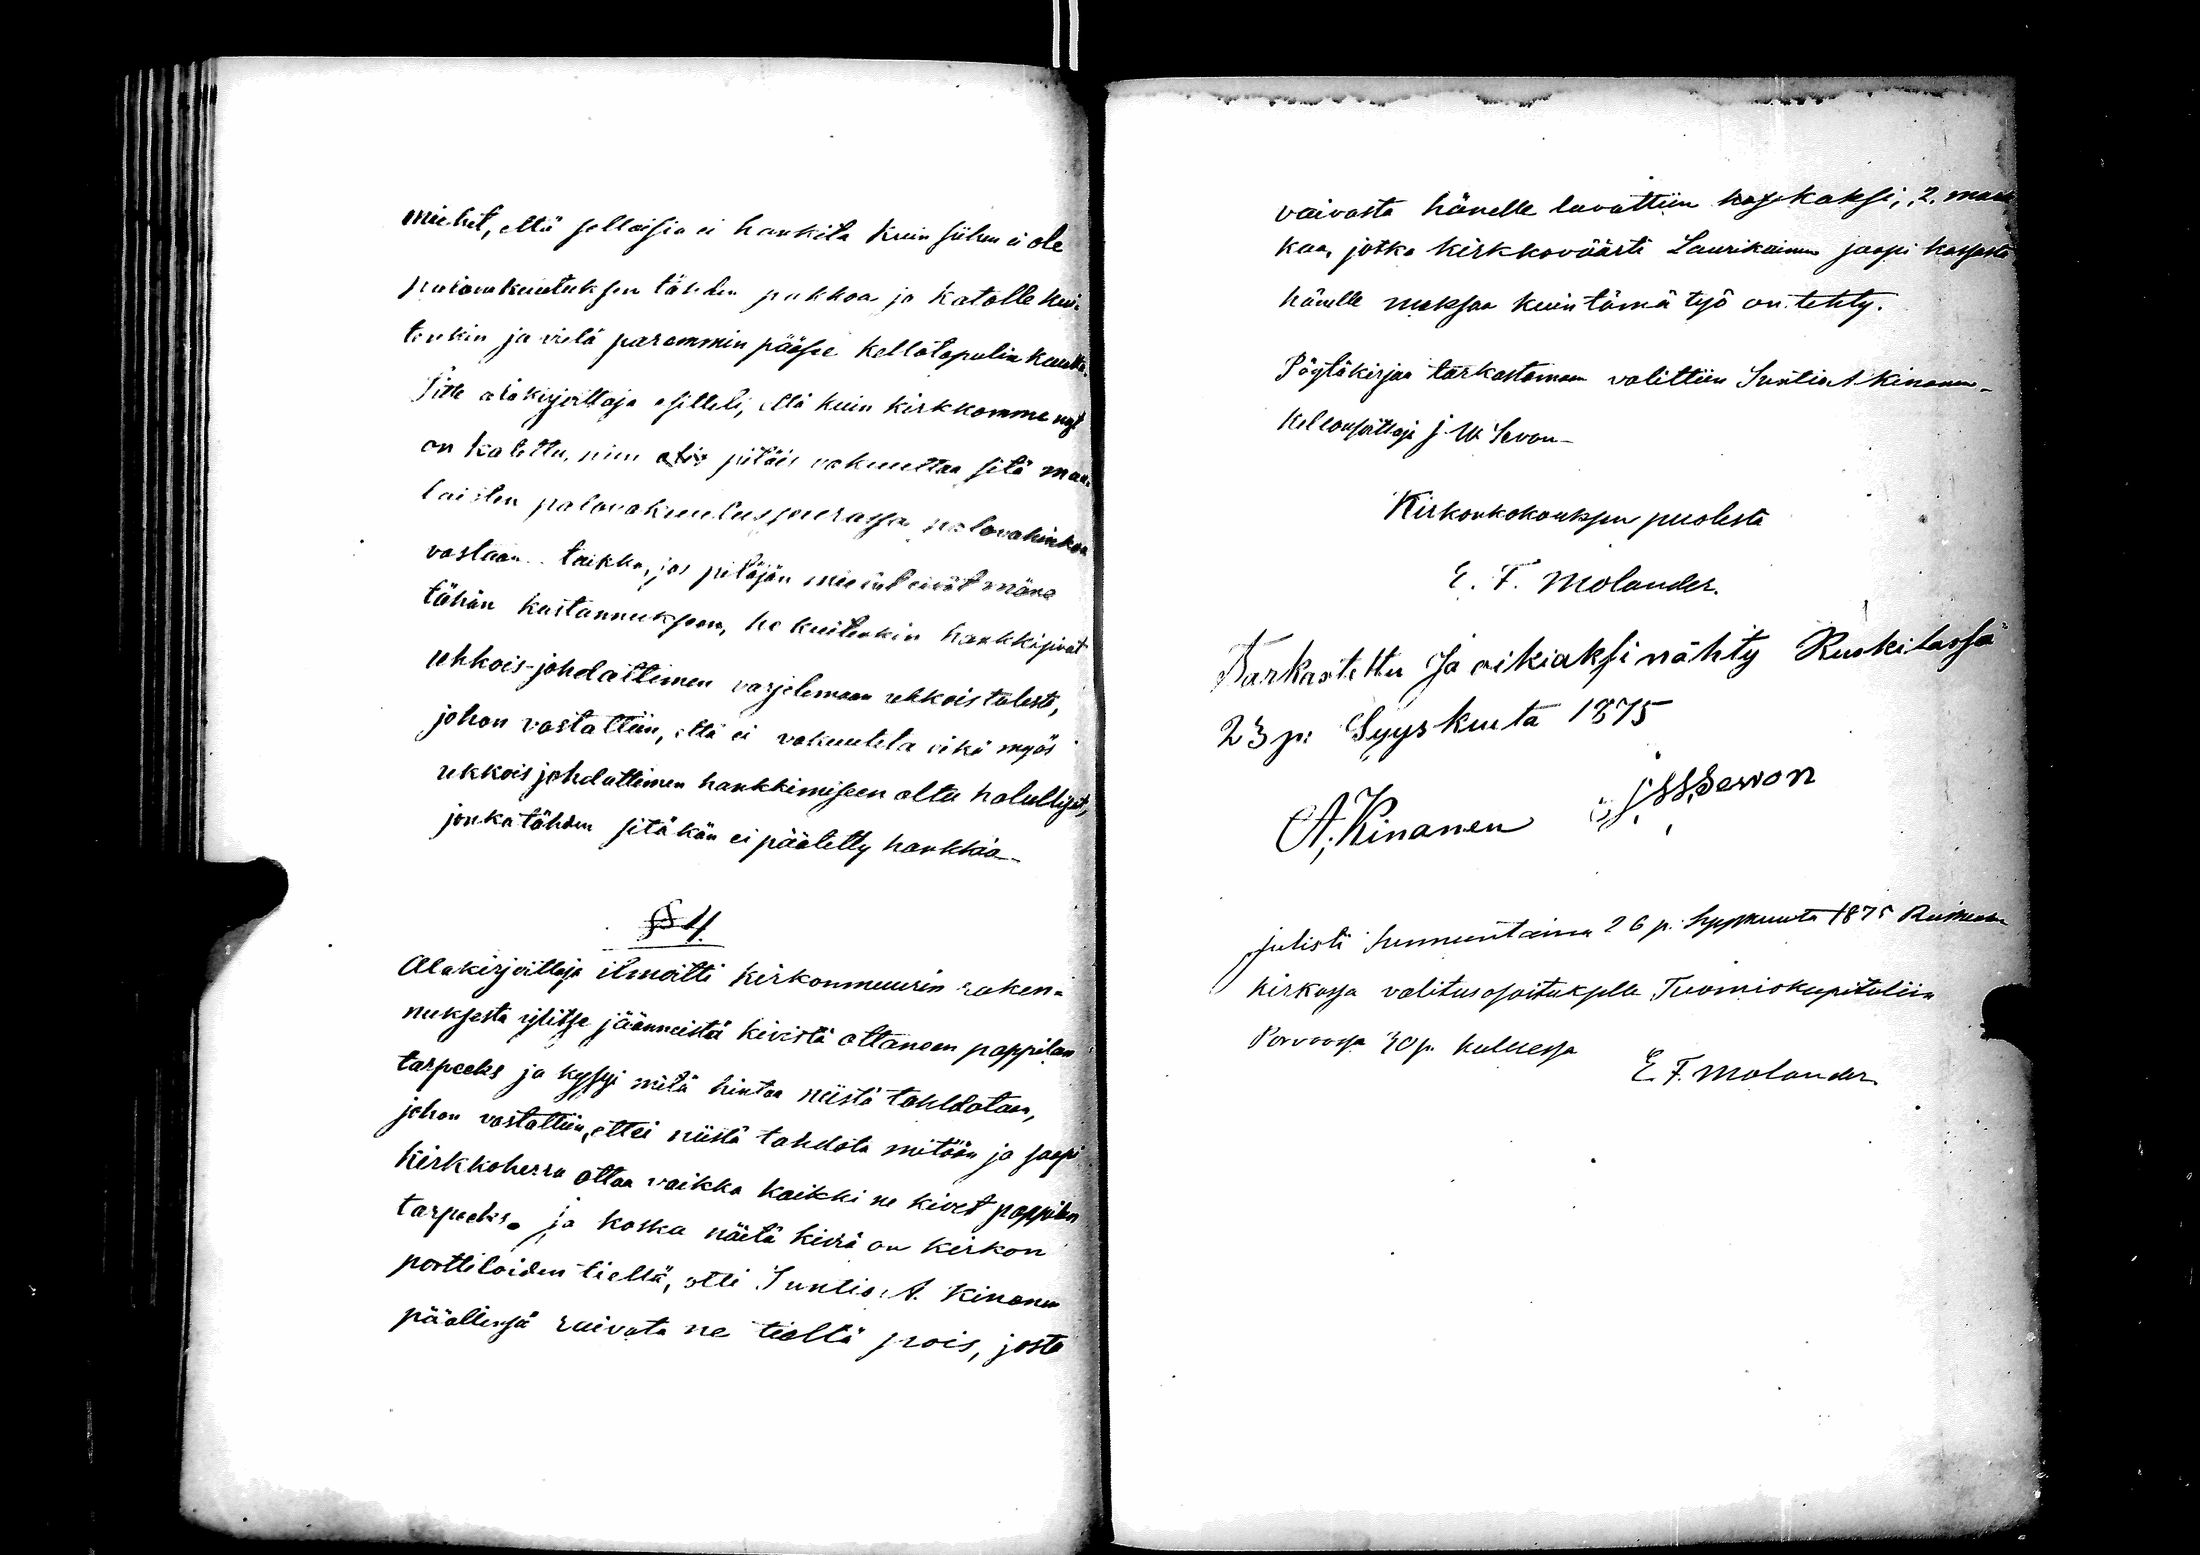 miehet, että sellaisia ei hankita kuin siihen ei ole
palovakuutuksen tähden pakkoa ja katolle kui-
tenkin ja vielä parammin pääsee kellotapulin kautta.
Sitte alakirjoittaja esitteli, että kuin kirkkomme nyt
on katettu, niin pitäis vakuuttaa sitä maa-
laisten palovakuutusseurassa palovahinkoa
vastaan taikka, jos pitäjän miehet eivät mäne
tähän kustannukseen, he kuitenkin hankkisivat
ukkois-johdattimen varjelemaan ukkois tulesta,
johon vastattiin, että ei vakuuteta eikä myös
ukkois johdattimen hankkimiseen oltu halulliset,
jonka tähden sitäkän ei päätetty hankkia_
§ 4.
Alakirjoittaja ilmoitti kirkonmuurin raken-
nuksesta ylitse jäänneistä kivistä ottaneen pappilan
tarpeeks ja kysyi mitä hintaa niistä tahdotaan,
johon vastattiin, ettei niistä tahdota mitään ja saapi
Kirkkoherra ottaa vaikka kaikki ne kivet pappilan
tarpeeks. ja koska näitä kiviä on kirkon
porttiloiden tiellä, otti Suntio A. Kinanen
päällensä raivata ne tieltä pois, josta
vaivasta hänelle luvattiin kaksi, 2, mark
kaa, jotka kirkkoväärti Laurikainen saapi kassasta
hänelle maksaa kuin tämä työ on tehty.
Pöytäkirjaa tarkastamaan valittiin Suntio A Kinanen
Kellonsoittaja J W Sevon_
Kirkonkokouksen puolesta
E. F. Molander.
Tarkastettu ja oikiaksi nähty Ruskilassa
23 p: Syyskuuta 1875
A, Kinanen J W Sewon
julisti Sunnuntaina 26 p. Syyskuuta 1875
kirkossa valitusosoituksella Tuomiokapitoliin
Porvoossa 30 p. kuluessa
E. F. Molander.